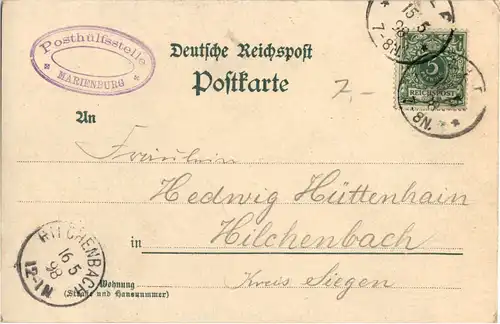 Posthülfsstelle
* MARIENBURG *
Deutsche Reichspost
Postkarte
15 5
98
7-8N.
REICHSPOST
8N.
7-
An
Fräulein
Hedwig Hüttenhain
in Hilchenbach
Kreis Siegen
HILCHENBACH
16 5
98
12-1N
Wohnung
(Straße und Hausnummer)